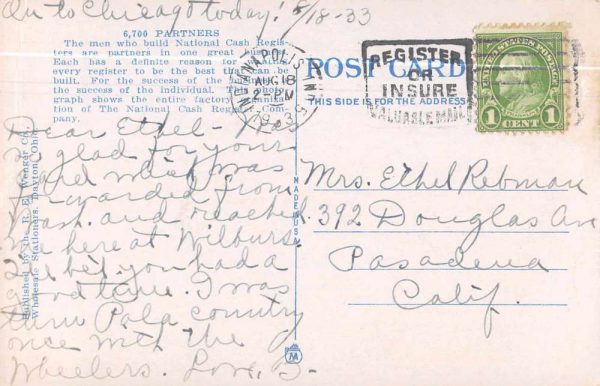 On to Chicago today! 8/18-33
6,700 PARTNERS
The men who build National Cash Regis-
ters are partners in one great
Each has a definite reason for
every register to be the best that can be
built. For the success of the business is
the success of the individual. This photo-
graph shows the entire factory
tion of The National Cash Register Com-
pany.
Published by the R. E. Wenger Co.
Wholesale Stationers, Dayton, Ohio
INDIANAPOLIS, IND.
AUG 18
2-PM
1933
REGISTER
OR
INSURE
VALUABLE MAIL
UNITED STATES POSTAGE
1 CENT 1
POST CARD
THIS SIDE IS FOR THE ADDRESS
MADE IN U.S.A.
M
Dear Ethel - Was
so glad for your
card which was
forwarded from
Wash. and reached
me here at Wilburs.
I'll bet you had a
good time. I was
thru Pala country
once with the
Wheelers. Love, B-
Mrs. Ethel Rebman
392 Douglas Av
Pasadena
Calif.